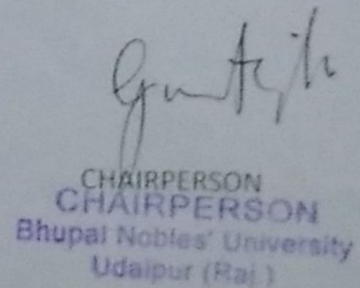 CHAIRPERSON
CHAIRPERSON
Bhupal Nobles' University
Udaipur (Raj.)